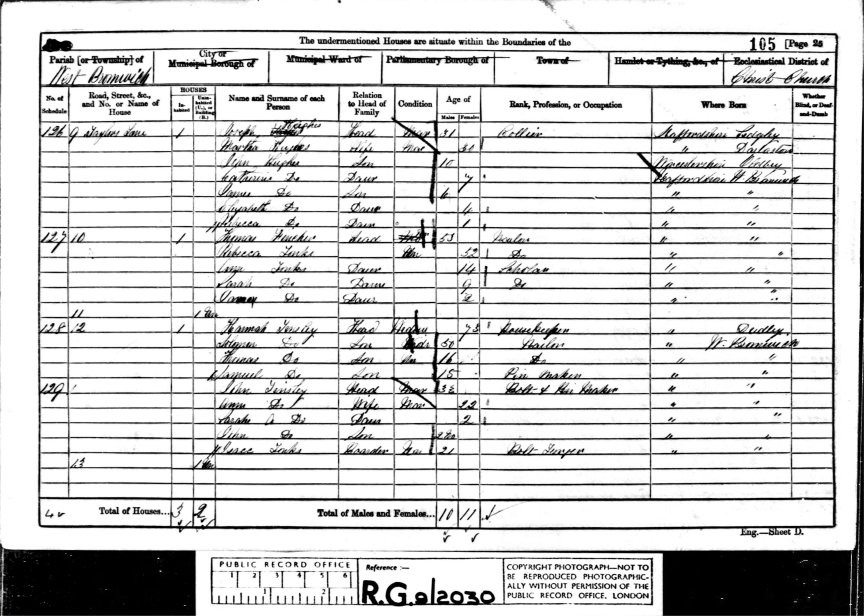 The undermentioned Houses are situate within the Boundaries of the
105 [Page 25
Parish [or Township] of
City or Municipal Borough of
Municipal Ward of
Parliamentary Borough of
Town of
Hamlet or Tything, &c., of
Ecclesiastical District of
West Bromwich
Christ Church
No. of Schedule
Road, Street, &c., and No. or Name of House
HOUSES
Inhabited
Uninhabited (U.), or Building (B.)
Name and Surname of each Person
Relation to Head of Family
Condition
Age of
Males
Females
Rank, Profession, or Occupation
Where Born
Whether Blind, or Deaf-and-Dumb
126 9 Taylors Lane 1 Joseph Hughes Head Mar 31 Collier Staffordshire Sedgley
Martha Hughes Wife Mar 30 " Darlaston
Hughes Son 10 Worcestershire
Catherine Do Daur 7 Staffordshire W. Bromwich
James Do Son 6 " "
Elizabeth Do Daur 4 " "
Rebecca Do Daur 1 " "
127 10 1 Thomas Head 53 Nailor " "
Rebecca Jenks Un 52 Do " "
Jenks Daur 14 Scholar " "
Sarah Do Daur 9 Do " "
Do Daur 2 " "
11 1 Un
128 12 1 Hannah Tinsley Head Widow 73 Housekeeper " Dudley
Do Son 50 Nailor " W. Bromwich
Thomas Do Son Un 16 Do " "
Samuel Do Son 15 Pin Maker " "
129 John Tinsley Head Mar 32 Bolt & Pin Maker " "
Do Wife Mar 22 " "
Sarah A Do Daur 2 " "
John Do Son 2 Mo " "
Isaac Jenks Boarder Un 21 Bolt Forger " "
13 1 Un
Total of Houses... 3 2
Total of Males and Females... 10 11
Eng.—Sheet D.
PUBLIC RECORD OFFICE
1 2 3 4 5 6
1 2
Reference :—
R.G.9/2030
COPYRIGHT PHOTOGRAPH—NOT TO BE REPRODUCED PHOTOGRAPHICALLY WITHOUT PERMISSION OF THE PUBLIC RECORD OFFICE, LONDON